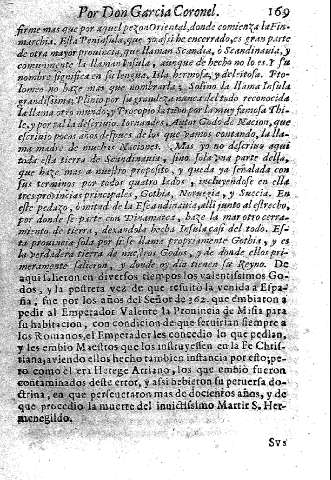 Por Don Garcia Coronel. 169
firme mas que por aquel pezon Oriental, donde comienza la Fin-
marchia. Esta Peninsula, que ya assi he encerrado, es gran parte
de otra mayor provincia, que llaman Scandia, ò Scandinauia, y
comunmente la llaman Insula, aunque de hecho no lo es. Y su
nombre significa en su lengua, Isla hermosa, y deleitosa. Pto-
lomeo no haze mas que nombrarla; Solino la llama Insula
grandissima; Plinio por su grandeza nunca del todo reconocida
la llama otro mundo; y Procopio latino por la muy famosa Thi-
le, y por tal la descrive. Iornandes, Autor Godo de Nacion, que
escrivio pocos años despues de lo que vamos contando, la lla-
ma madre de muchas Naciones. Mas yo no descrivo aqui
toda esta tierra de Scandinauia, sino sola vna parte della,
que haze mas a nuestro proposito, y queda ya señalada con
sus terminos por todos quatro lados, incluyendose en ella
tres provincias principales, Gothia, Noruegia, y Suecia. En
este pedazo, ò mitad de la Escandinauia, alli junto al estrecho,
por donde se parte con Dinamarca, haze la mar otro cerra-
miento de tierra, dexandola hecha Insula casi del todo. Es-
ta provincia sola por si se llama propriamente Gothia, y es
la verdadera tierra de nuestros Godos, y de donde ellos pri-
meramente salieron, y donde oy dia tienen su Reyno. De
aqui salieron en diversos tiempos los valentissimos Go-
dos, y la postrera vez de que resultò la venida a Espa-
ña, fue por los años del Señor de 362. que embiaron a
pedir al Emperador Valente la Prouincia de Misia para
su habitacion, con condicion de que seruirian siempre a
los Romanos, el Emperador les concedio lo que pedian,
y les embiò Maestros que los instruyessen en la Fe Chris-
tiana, aviendo ellos hecho tambien instancia por esto; pe-
ro como el era Herege Arriano, los que embiò fueron
contaminados deste error, y assi bebieron su peruersa do-
ctrina, en que perseueraron mas de docientos años, y de
que procedio la muerte del inuictissimo Martir S. Her-
menegildo.
Sus